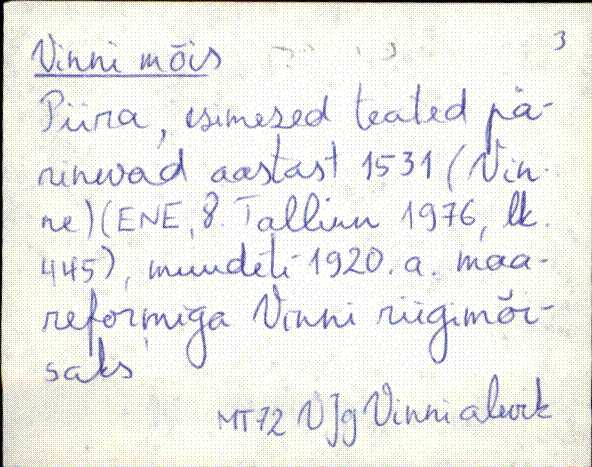 3
Vinni mõis
Piira, esimesed teated pä-
rinevad aastast 1531 (Vin-
ne) (ENE, 8. Tallinn 1976, lk.
445), muudeti 1920. a. maa-
reformiga Vinni riigimõi-
saks
MT72 VJg Vinni alevik